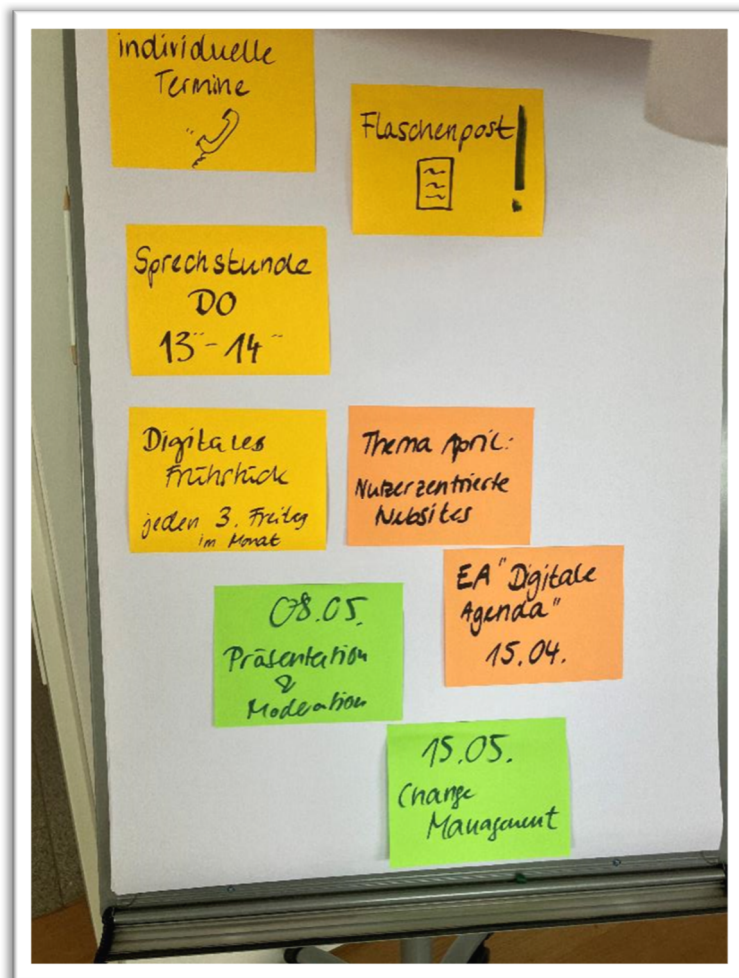 individuelle
Termine
Flaschenpost!
Sprechstunde
DO
13⁰⁰-14⁰⁰
Digitales
Frühstück
jeden 3. Freitag
im Monat
Thema April:
Nutzerzentrierte
Websites
EA "Digitale
Agenda"
15.04.
08.05.
Präsentation
&
Moderation
15.05.
Change
Management